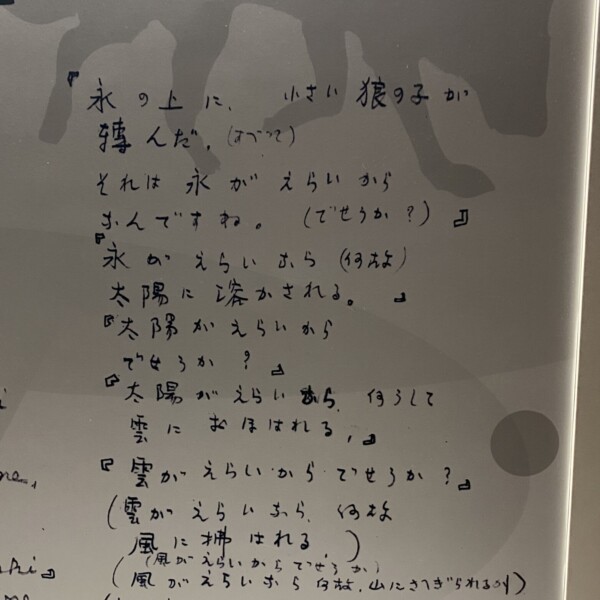 『氷の上に、小さい狼の子が
轉んだ。(すべって)
それは氷がえらいから
なんですね。(でせうか?)』
『氷がえらいなら(何故)
太陽に溶かされる。』
『太陽がえらいから
でせうか?』
『太陽がえらいなら、何うして
雲におほはれる、』
『雲がえらいからでせうか?』
(雲がえらいなら、何故
風に拂はれる)
(風がえらいからでせうか)
(風がえらいなら何故、山にさへぎられるか)